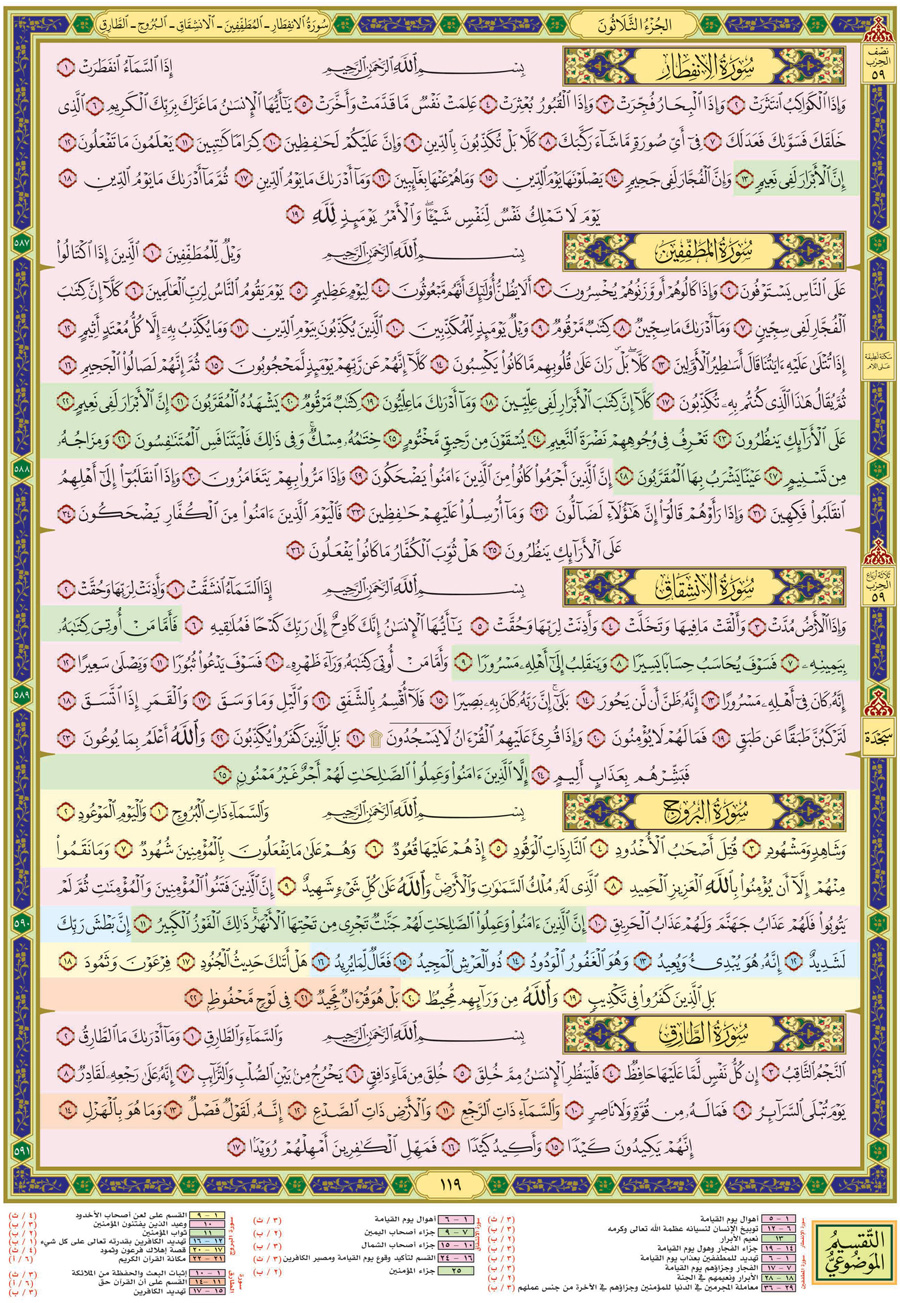 الجزء الثلاثون
سورة الانفطار - المطففين - الانشقاق - البروج - الطارق
نصف الحزب ٥٩
سُورَةُ الانفِطَارِ
بِسْمِ اللَّهِ الرَّحْمَٰنِ الرَّحِيمِ إِذَا السَّمَاءُ انفَطَرَتْ ١
وَإِذَا الْكَوَاكِبُ انتَثَرَتْ ٢ وَإِذَا الْبِحَارُ فُجِّرَتْ ٣ وَإِذَا الْقُبُورُ بُعْثِرَتْ ٤ عَلِمَتْ نَفْسٌ مَّا قَدَّمَتْ وَأَخَّرَتْ ٥ يَا أَيُّهَا الْإِنسَانُ مَا غَرَّكَ بِرَبِّكَ الْكَرِيمِ ٦ الَّذِي
خَلَقَكَ فَسَوَّاكَ فَعَدَلَكَ ٧ فِي أَيِّ صُورَةٍ مَّا شَاءَ رَكَّبَكَ ٨ كَلَّا بَلْ تُكَذِّبُونَ بِالدِّينِ ٩ وَإِنَّ عَلَيْكُمْ لَحَافِظِينَ ١٠ كِرَامًا كَاتِبِينَ ١١ يَعْلَمُونَ مَا تَفْعَلُونَ ١٢
إِنَّ الْأَبْرَارَ لَفِي نَعِيمٍ ١٣ وَإِنَّ الْفُجَّارَ لَفِي جَحِيمٍ ١٤ يَصْلَوْنَهَا يَوْمَ الدِّينِ ١٥ وَمَا هُمْ عَنْهَا بِغَائِبِينَ ١٦ وَمَا أَدْرَاكَ مَا يَوْمُ الدِّينِ ١٧ ثُمَّ مَا أَدْرَاكَ مَا يَوْمُ الدِّينِ ١٨
يَوْمَ لَا تَمْلِكُ نَفْسٌ لِّنَفْسٍ شَيْئًا وَالْأَمْرُ يَوْمَئِذٍ لِّلَّهِ ١٩
٥٨٧
سُورَةُ المُطَفِّفِينَ
بِسْمِ اللَّهِ الرَّحْمَٰنِ الرَّحِيمِ وَيْلٌ لِّلْمُطَفِّفِينَ ١ الَّذِينَ إِذَا اكْتَالُوا
عَلَى النَّاسِ يَسْتَوْفُونَ ٢ وَإِذَا كَالُوهُمْ أَو وَّزَنُوهُمْ يُخْسِرُونَ ٣ أَلَا يَظُنُّ أُولَٰئِكَ أَنَّهُم مَّبْعُوثُونَ ٤ لِيَوْمٍ عَظِيمٍ ٥ يَوْمَ يَقُومُ النَّاسُ لِرَبِّ الْعَالَمِينَ ٦ كَلَّا إِنَّ كِتَابَ
الْفُجَّارِ لَفِي سِجِّينٍ ٧ وَمَا أَدْرَاكَ مَا سِجِّينٌ ٨ كِتَابٌ مَّرْقُومٌ ٩ وَيْلٌ يَوْمَئِذٍ لِّلْمُكَذِّبِينَ ١٠ الَّذِينَ يُكَذِّبُونَ بِيَوْمِ الدِّينِ ١١ وَمَا يُكَذِّبُ بِهِ إِلَّا كُلُّ مُعْتَدٍ أَثِيمٍ ١٢
إِذَا تُتْلَىٰ عَلَيْهِ آيَاتُنَا قَالَ أَسَاطِيرُ الْأَوَّلِينَ ١٣ كَلَّا بَلْ رَانَ عَلَىٰ قُلُوبِهِم مَّا كَانُوا يَكْسِبُونَ ١٤ كَلَّا إِنَّهُمْ عَن رَّبِّهِمْ يَوْمَئِذٍ لَّمَحْجُوبُونَ ١٥ ثُمَّ إِنَّهُمْ لَصَالُو الْجَحِيمِ ١٦
سكتة لطيفة على اللام
ثُمَّ يُقَالُ هَٰذَا الَّذِي كُنتُم بِهِ تُكَذِّبُونَ ١٧ كَلَّا إِنَّ كِتَابَ الْأَبْرَارِ لَفِي عِلِّيِّينَ ١٨ وَمَا أَدْرَاكَ مَا عِلِّيُّونَ ١٩ كِتَابٌ مَّرْقُومٌ ٢٠ يَشْهَدُهُ الْمُقَرَّبُونَ ٢١ إِنَّ الْأَبْرَارَ لَفِي نَعِيمٍ ٢٢
عَلَى الْأَرَائِكِ يَنظُرُونَ ٢٣ تَعْرِفُ فِي وُجُوهِهِمْ نَضْرَةَ النَّعِيمِ ٢٤ يُسْقَوْنَ مِن رَّحِيقٍ مَّخْتُومٍ ٢٥ خِتَامُهُ مِسْكٌ وَفِي ذَٰلِكَ فَلْيَتَنَافَسِ الْمُتَنَافِسُونَ ٢٦ وَمِزَاجُهُ
٥٨٨
مِن تَسْنِيمٍ ٢٧ عَيْنًا يَشْرَبُ بِهَا الْمُقَرَّبُونَ ٢٨ إِنَّ الَّذِينَ أَجْرَمُوا كَانُوا مِنَ الَّذِينَ آمَنُوا يَضْحَكُونَ ٢٩ وَإِذَا مَرُّوا بِهِمْ يَتَغَامَزُونَ ٣٠ وَإِذَا انقَلَبُوا إِلَىٰ أَهْلِهِمُ
انقَلَبُوا فَكِهِينَ ٣١ وَإِذَا رَأَوْهُمْ قَالُوا إِنَّ هَٰؤُلَاءِ لَضَالُّونَ ٣٢ وَمَا أُرْسِلُوا عَلَيْهِمْ حَافِظِينَ ٣٣ فَالْيَوْمَ الَّذِينَ آمَنُوا مِنَ الْكُفَّارِ يَضْحَكُونَ ٣٤
عَلَى الْأَرَائِكِ يَنظُرُونَ ٣٥ هَلْ ثُوِّبَ الْكُفَّارُ مَا كَانُوا يَفْعَلُونَ ٣٦
ثلاثة أرباع الحزب ٥٩
سُورَةُ الانشِقَاقِ
بِسْمِ اللَّهِ الرَّحْمَٰنِ الرَّحِيمِ إِذَا السَّمَاءُ انشَقَّتْ ١ وَأَذِنَتْ لِرَبِّهَا وَحُقَّتْ ٢
وَإِذَا الْأَرْضُ مُدَّتْ ٣ وَأَلْقَتْ مَا فِيهَا وَتَخَلَّتْ ٤ وَأَذِنَتْ لِرَبِّهَا وَحُقَّتْ ٥ يَا أَيُّهَا الْإِنسَانُ إِنَّكَ كَادِحٌ إِلَىٰ رَبِّكَ كَدْحًا فَمُلَاقِيهِ ٦ فَأَمَّا مَنْ أُوتِيَ كِتَابَهُ
بِيَمِينِهِ ٧ فَسَوْفَ يُحَاسَبُ حِسَابًا يَسِيرًا ٨ وَيَنقَلِبُ إِلَىٰ أَهْلِهِ مَسْرُورًا ٩ وَأَمَّا مَنْ أُوتِيَ كِتَابَهُ وَرَاءَ ظَهْرِهِ ١٠ فَسَوْفَ يَدْعُو ثُبُورًا ١١ وَيَصْلَىٰ سَعِيرًا ١٢
٥٨٩
إِنَّهُ كَانَ فِي أَهْلِهِ مَسْرُورًا ١٣ إِنَّهُ ظَنَّ أَن لَّن يَحُورَ ١٤ بَلَىٰ إِنَّ رَبَّهُ كَانَ بِهِ بَصِيرًا ١٥ فَلَا أُقْسِمُ بِالشَّفَقِ ١٦ وَاللَّيْلِ وَمَا وَسَقَ ١٧ وَالْقَمَرِ إِذَا اتَّسَقَ ١٨
لَتَرْكَبُنَّ طَبَقًا عَن طَبَقٍ ١٩ فَمَا لَهُمْ لَا يُؤْمِنُونَ ٢٠ وَإِذَا قُرِئَ عَلَيْهِمُ الْقُرْآنُ لَا يَسْجُدُونَ ۩ ٢١ بَلِ الَّذِينَ كَفَرُوا يُكَذِّبُونَ ٢٢ وَاللَّهُ أَعْلَمُ بِمَا يُوعُونَ ٢٣
سَجْدَة
فَبَشِّرْهُم بِعَذَابٍ أَلِيمٍ ٢٤ إِلَّا الَّذِينَ آمَنُوا وَعَمِلُوا الصَّالِحَاتِ لَهُمْ أَجْرٌ غَيْرُ مَمْنُونٍ ٢٥
سُورَةُ البُرُوجِ
بِسْمِ اللَّهِ الرَّحْمَٰنِ الرَّحِيمِ وَالسَّمَاءِ ذَاتِ الْبُرُوجِ ١ وَالْيَوْمِ الْمَوْعُودِ ٢
وَشَاهِدٍ وَمَشْهُودٍ ٣ قُتِلَ أَصْحَابُ الْأُخْدُودِ ٤ النَّارِ ذَاتِ الْوَقُودِ ٥ إِذْ هُمْ عَلَيْهَا قُعُودٌ ٦ وَهُمْ عَلَىٰ مَا يَفْعَلُونَ بِالْمُؤْمِنِينَ شُهُودٌ ٧ وَمَا نَقَمُوا
مِنْهُمْ إِلَّا أَن يُؤْمِنُوا بِاللَّهِ الْعَزِيزِ الْحَمِيدِ ٨ الَّذِي لَهُ مُلْكُ السَّمَاوَاتِ وَالْأَرْضِ وَاللَّهُ عَلَىٰ كُلِّ شَيْءٍ شَهِيدٌ ٩ إِنَّ الَّذِينَ فَتَنُوا الْمُؤْمِنِينَ وَالْمُؤْمِنَاتِ ثُمَّ لَمْ
٥٩٠
يَتُوبُوا فَلَهُمْ عَذَابُ جَهَنَّمَ وَلَهُمْ عَذَابُ الْحَرِيقِ ١٠ إِنَّ الَّذِينَ آمَنُوا وَعَمِلُوا الصَّالِحَاتِ لَهُمْ جَنَّاتٌ تَجْرِي مِن تَحْتِهَا الْأَنْهَارُ ذَٰلِكَ الْفَوْزُ الْكَبِيرُ ١١ إِنَّ بَطْشَ رَبِّكَ
لَشَدِيدٌ ١٢ إِنَّهُ هُوَ يُبْدِئُ وَيُعِيدُ ١٣ وَهُوَ الْغَفُورُ الْوَدُودُ ١٤ ذُو الْعَرْشِ الْمَجِيدُ ١٥ فَعَّالٌ لِّمَا يُرِيدُ ١٦ هَلْ أَتَاكَ حَدِيثُ الْجُنُودِ ١٧ فِرْعَوْنَ وَثَمُودَ ١٨
بَلِ الَّذِينَ كَفَرُوا فِي تَكْذِيبٍ ١٩ وَاللَّهُ مِن وَرَائِهِم مُّحِيطٌ ٢٠ بَلْ هُوَ قُرْآنٌ مَّجِيدٌ ٢١ فِي لَوْحٍ مَّحْفُوظٍ ٢٢
سُورَةُ الطَّارِقِ
بِسْمِ اللَّهِ الرَّحْمَٰنِ الرَّحِيمِ وَالسَّمَاءِ وَالطَّارِقِ ١ وَمَا أَدْرَاكَ مَا الطَّارِقُ ٢
النَّجْمُ الثَّاقِبُ ٣ إِن كُلُّ نَفْسٍ لَّمَّا عَلَيْهَا حَافِظٌ ٤ فَلْيَنظُرِ الْإِنسَانُ مِمَّ خُلِقَ ٥ خُلِقَ مِن مَّاءٍ دَافِقٍ ٦ يَخْرُجُ مِن بَيْنِ الصُّلْبِ وَالتَّرَائِبِ ٧ إِنَّهُ عَلَىٰ رَجْعِهِ لَقَادِرٌ ٨
يَوْمَ تُبْلَى السَّرَائِرُ ٩ فَمَا لَهُ مِن قُوَّةٍ وَلَا نَاصِرٍ ١٠ وَالسَّمَاءِ ذَاتِ الرَّجْعِ ١١ وَالْأَرْضِ ذَاتِ الصَّدْعِ ١٢ إِنَّهُ لَقَوْلٌ فَصْلٌ ١٣ وَمَا هُوَ بِالْهَزْلِ ١٤
إِنَّهُمْ يَكِيدُونَ كَيْدًا ١٥ وَأَكِيدُ كَيْدًا ١٦ فَمَهِّلِ الْكَافِرِينَ أَمْهِلْهُمْ رُوَيْدًا ١٧
٥٩١
١١٩
التقسيم الموضوعي
١ - ٥ أهوال يوم القيامة
٦ - ١٢ توبيخ الإنسان لنسيانه عظمة الله تعالى وكرمه
١٣ نعيم الأبرار
١٤ - ١٩ جزاء الفجار وهول يوم القيامة
١ - ٦ تهديد للمطففين بعذاب يوم القيامة
٧ - ١٧ الفجار وجزاؤهم يوم القيامة
١٨ - ٢٨ الأبرار ونعيمهم في الجنة
٢٩ - ٣٦ معاملة المجرمين في الدنيا للمؤمنين وجزاؤهم في الآخرة من جنس عملهم
١ - ٦ أهوال يوم القيامة
٧ - ٩ جزاء أصحاب اليمين
١٠ - ١٥ جزاء أصحاب الشمال
١٦ - ٢٤ القسم لتأكيد وقوع يوم القيامة ومصير الكافرين
٢٥ جزاء المؤمنين
١ - ٩ القسم على لعن أصحاب الأخدود
١٠ وعيد الذين يفتنون المؤمنين
١١ ثواب المؤمنين
١٢ - ١٦ تهديد الكافرين بقدرته تعالى على كل شيء
١٧ - ٢٠ قصة إهلاك فرعون وثمود
٢١ - ٢٢ مكانة القرآن الكريم
١ - ١٠ إثبات البعث والحفظة من الملائكة
١١ - ١٤ القسم على أن القرآن حق
١٥ - ١٧ تهديد الكافرين